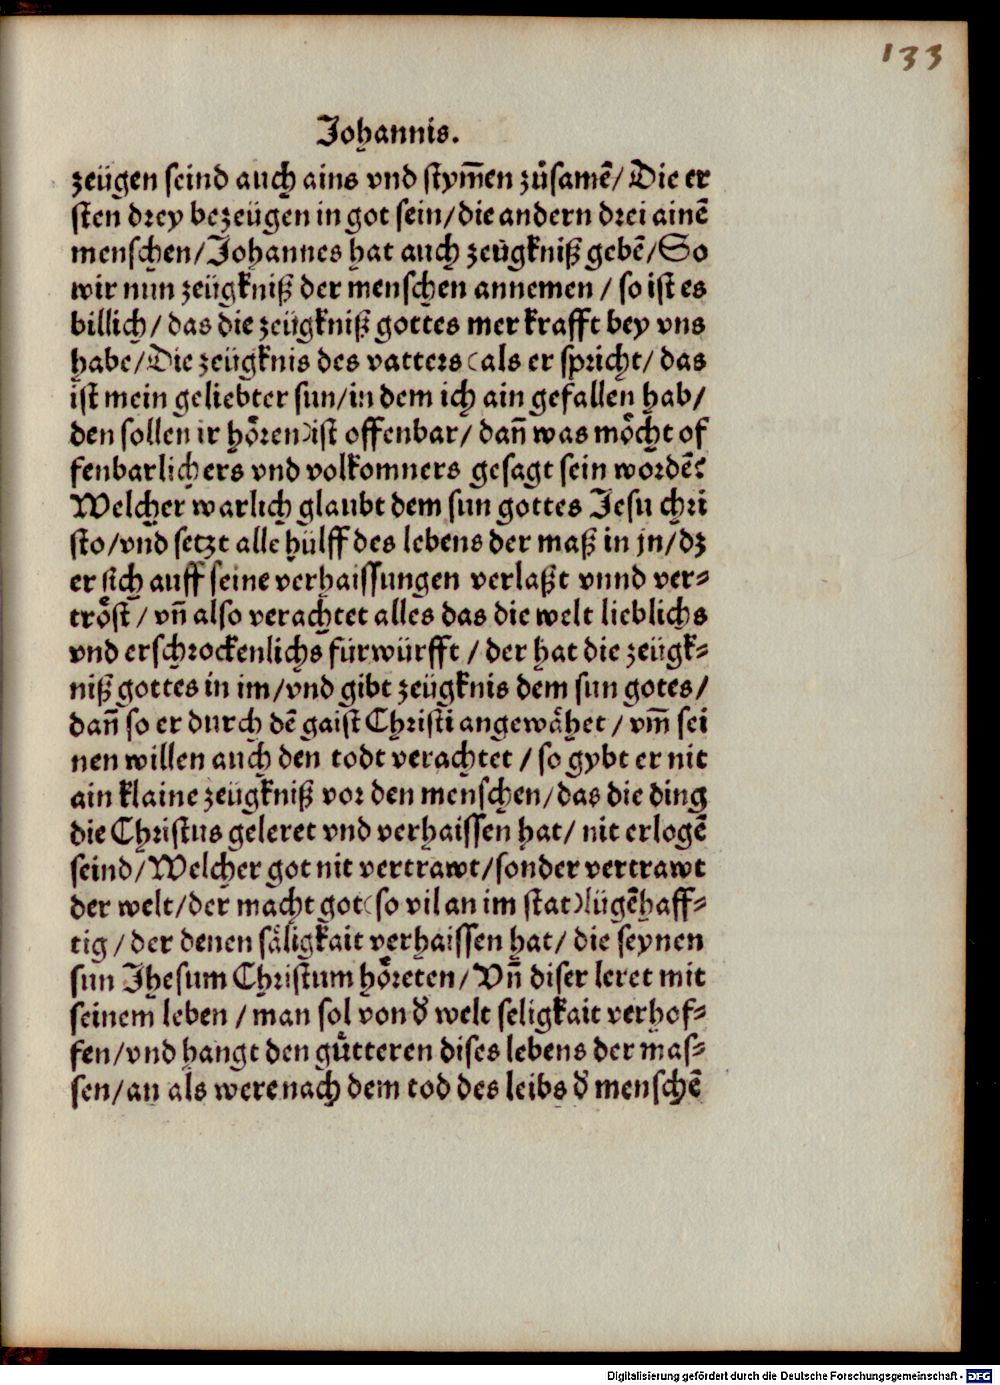 133
Johannis.
zeügen seind auch ains vnd stym̃en zůsamẽ/ Die er
sten drey bezeügen in got sein/die andern drei ainẽ
menschen/Johannes hat auch zeügkniß gebẽ/So
wir nun zeügkniß der menschen annemen / so ist es
billich/ das die zeügkniß gottes mer krafft bey vns
habe/Die zeügknis des vatters (als er spricht/ das
ist mein geliebter sun/in dem ich ain gefallen hab/
den sollen ir hoͤren)ist offenbar/ dañ was moͤcht of
fenbarlichers vnd volkomners gesagt sein wordẽ?
Welcher warlich glaubt dem sun gottes Jesu chri
sto/vnd setzt alle hülff des lebens der maß in jn/dz
er sich auff seine verhaissungen verlaßt vnnd ver⸗
troͤst/ vñ also verachtet alles das die welt lieblichs
vnd erschrockenlichs fürwürfft / der hat die zeügk⸗
niß gottes in im/vnd gibt zeügknis dem sun gotes/
dañ so er durch dẽ gaist Christi angewaͤhet/ vm̃ sei
nen willen auch den todt verachtet / so gybt er nit
ain klaine zeügkniß vor den menschen/das die ding
die Christus geleret vnd verhaissen hat/ nit erlogẽ
seind/Welcher got nit vertrawt/sonder vertrawt
der welt/der macht got(so vil an im stat)lügẽhaff⸗
tig / der denen saͤligkait verhaissen hat/ die seynen
sun Jhesum Christum hoͤreten/ Vñ diser leret mit
seinem leben / man sol von d̕ welt seligkait verhof⸗
fen/vnd hangt den guͤtteren dises lebens der mas⸗
sen/an als were nach dem tod des leibs d̕ menschẽ
Digitalisierung gefördert durch die Deutsche Forschungsgemeinschaft - DFG